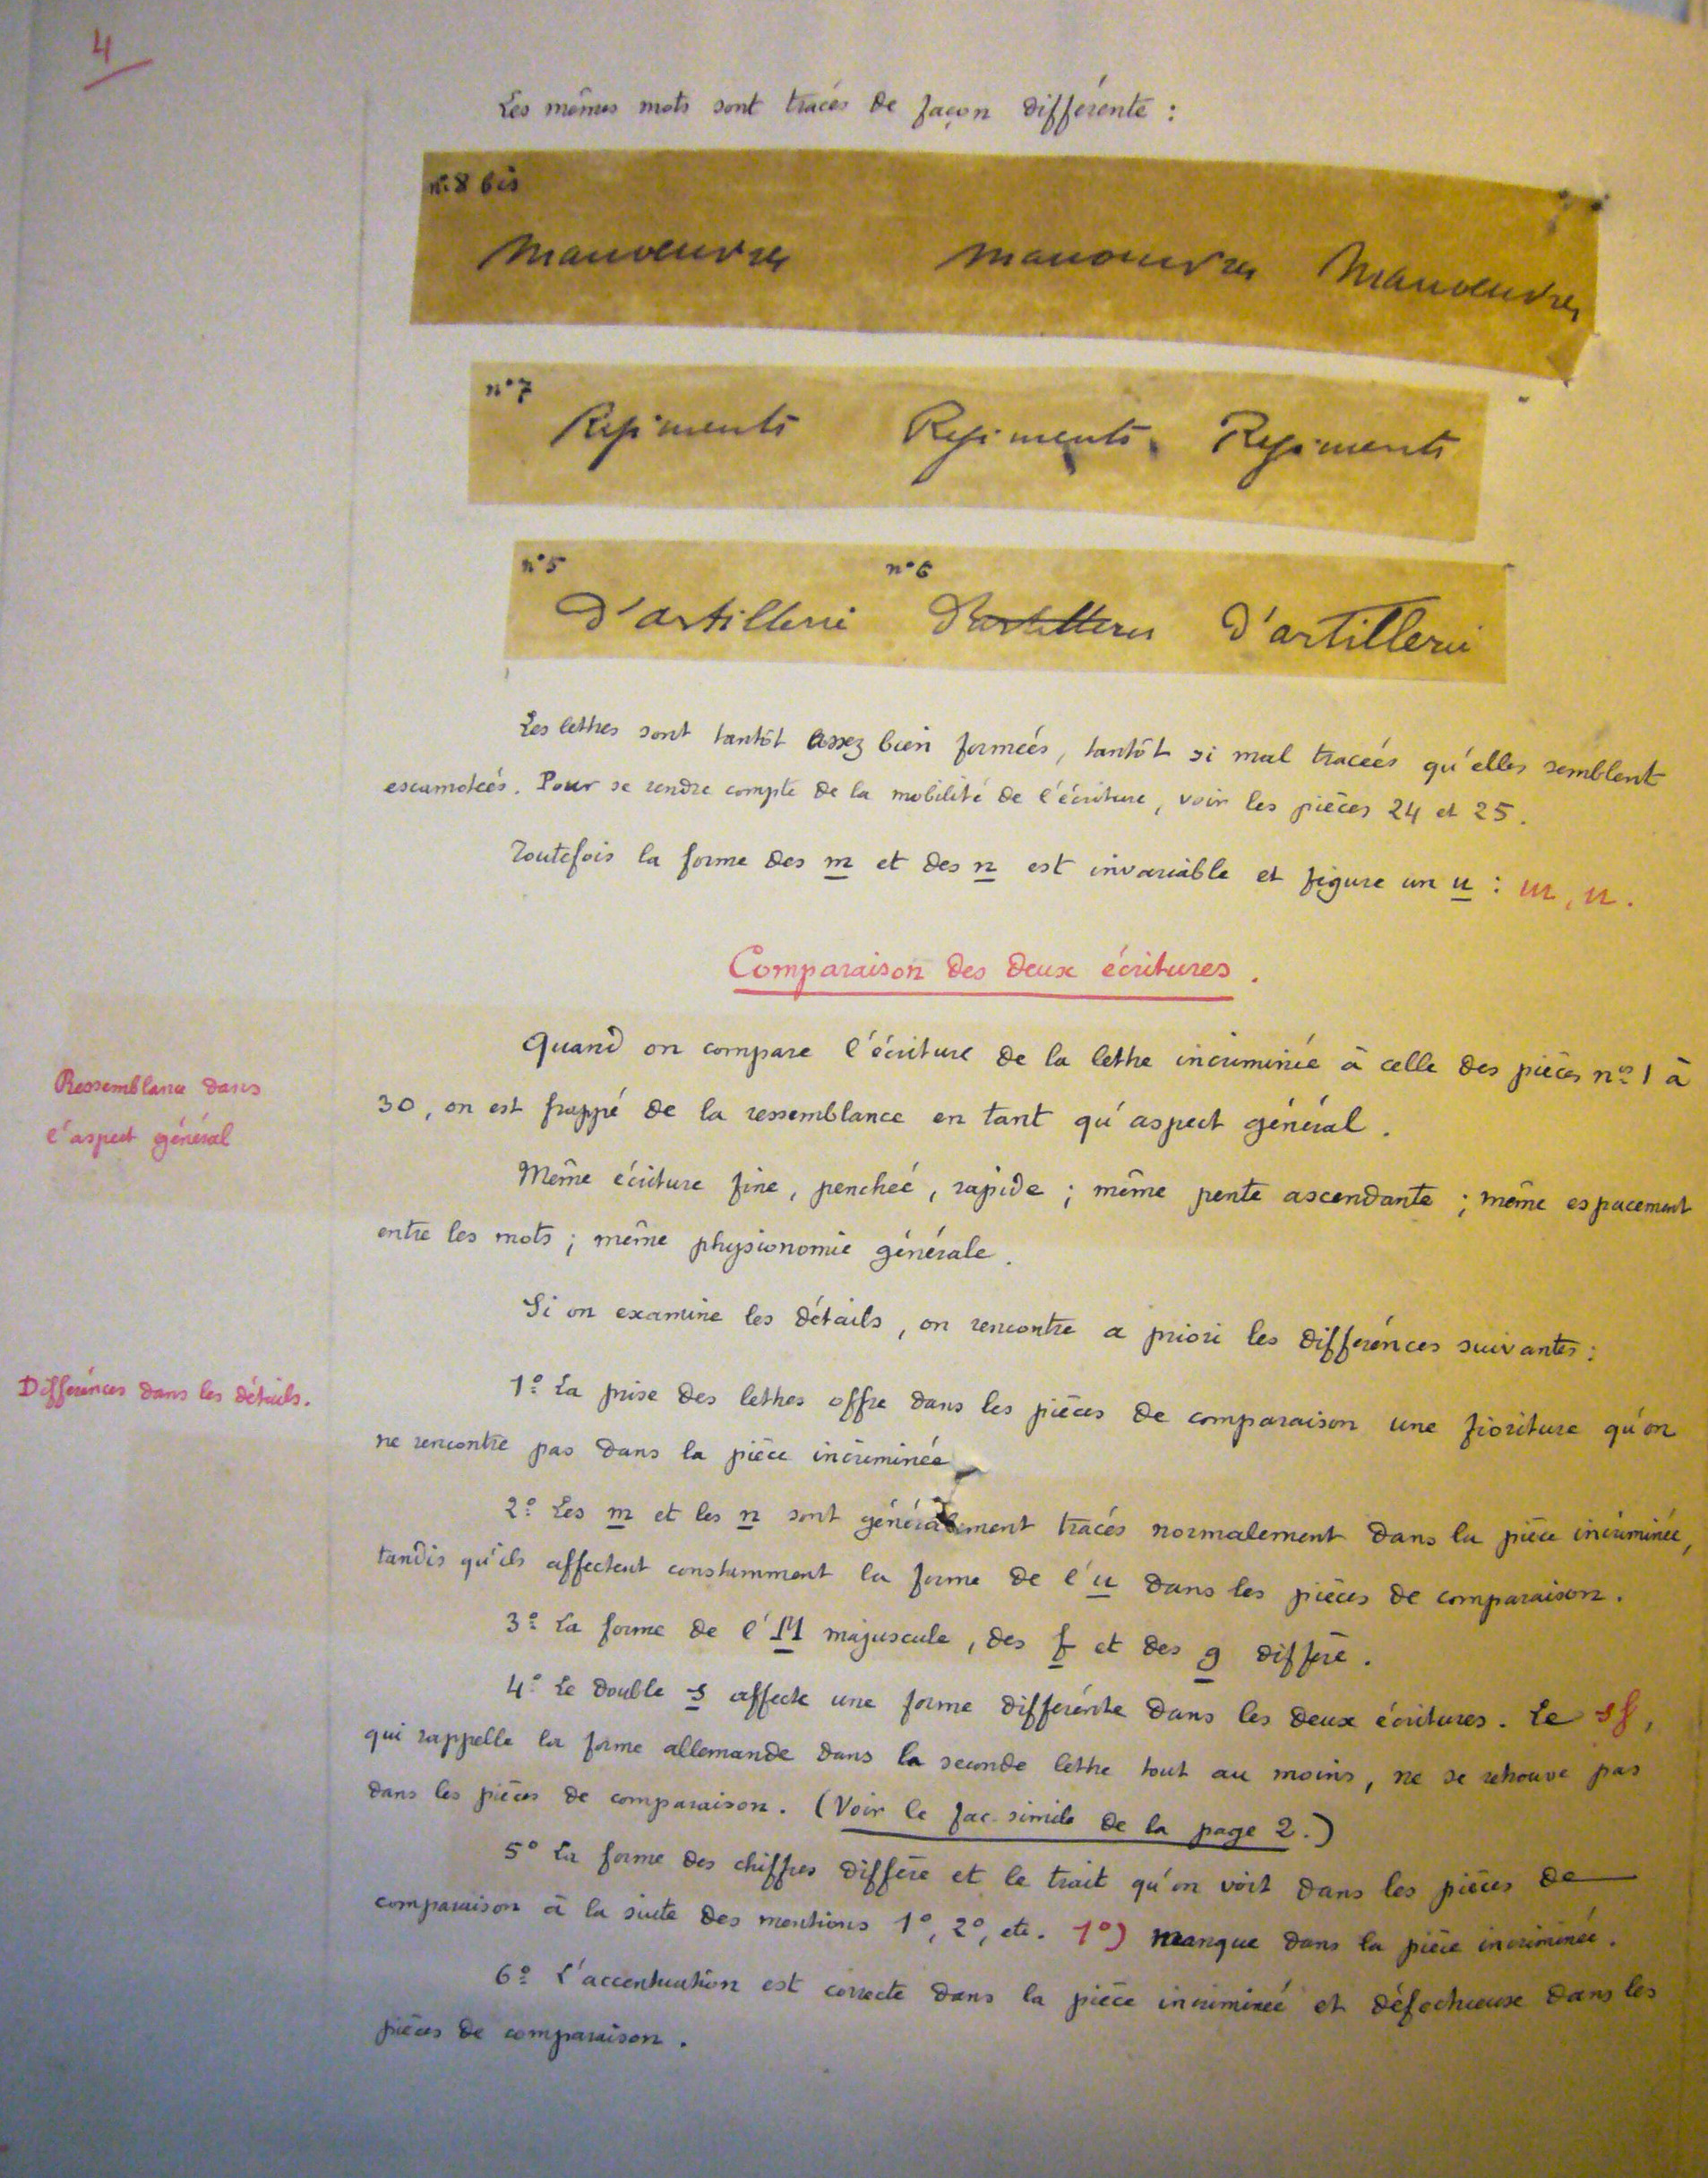 4
Les mêmes mots sont tracés de façon différente :
n° 8 bis
Manoeuvres manoeuvres Manoeuvres
n° 7
Regiments Regiments Regiments
n° 5 n° 6
d'artillerie d'artillerie d'artillerie
Les lettres sont tantôt assez bien formées, tantôt si mal tracées qu'elles semblent
escamotées. Pour se rendre compte de la mobilité de l'écriture, voir les pièces 24 et 25.
Toutefois la forme des m et des n est invariable et figure un u : m, n.
Comparaison des deux écritures.
Quand on compare l'écriture de la lettre incriminée à celle des pièces nos 1 à
Ressemblance dans
l'aspect général
30, on est frappé de la ressemblance en tant qu'aspect général.
Même écriture fine, penchée, rapide ; même pente ascendante ; même espacement
entre les mots ; même physionomie générale.
Si on examine les détails, on rencontre a priori les différences suivantes :
Différences dans les détails.
1° La prise des lettres offre dans les pièces de comparaison une fioriture qu'on
ne rencontre pas dans la pièce incriminée
2° Les m et les n sont généralement tracés normalement dans la pièce incriminée,
tandis qu'ils affectent constamment la forme de l'u dans les pièces de comparaison.
3° La forme de l'M majuscule, des f et des g diffère.
4° Le double s affecte une forme différente dans les deux écritures. Le sf,
qui rappelle la forme allemande dans la seconde lettre tout au moins, ne se retrouve pas
dans les pièces de comparaison. (Voir le fac. simile de la page 2.)
5° La forme des chiffres diffère et le trait qu'on voit dans les pièces de
comparaison à la suite des mentions 1°, 2°, etc. 1°) manque dans la pièce incriminée.
6° L'accentuation est correcte dans la pièce incriminée et défectueuse dans les
pièces de comparaison.